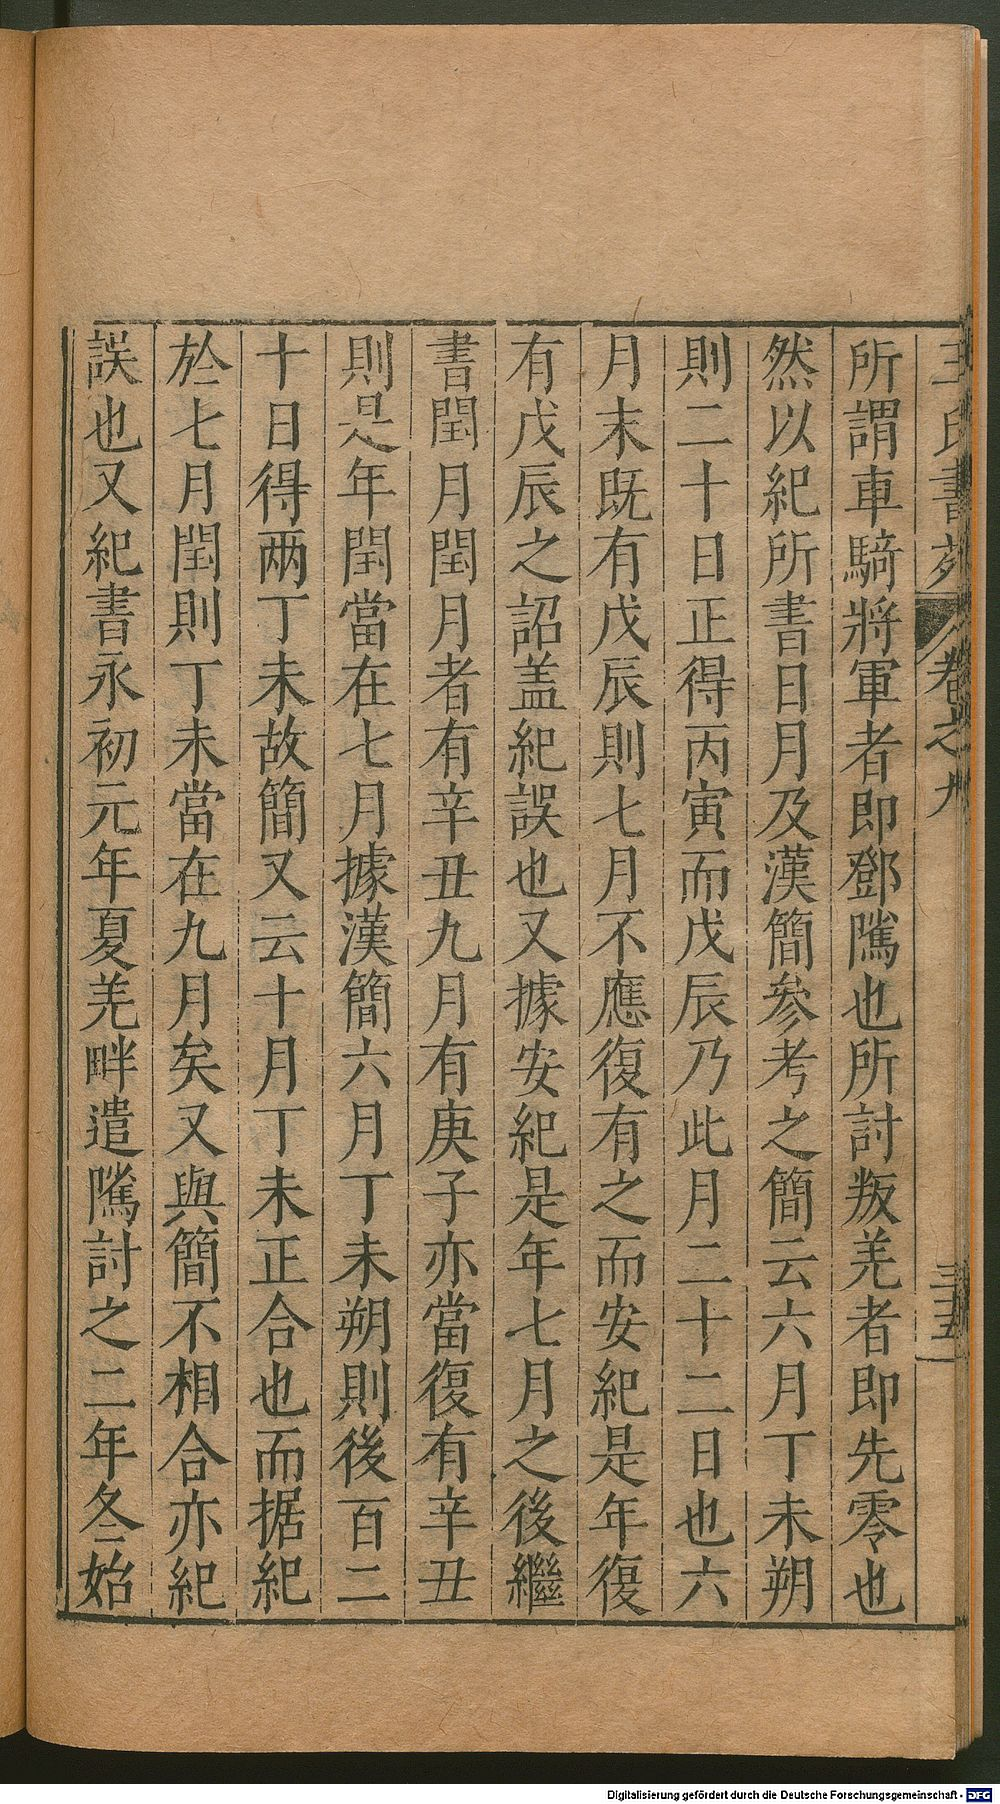 王氏書苑 卷之九 三五
所謂車騎將軍者即鄧騭也所討叛羌者即先零也
然以紀所書日月及漢簡參考之簡云六月丁未朔
則二十日正得丙寅而戊辰乃此月二十二日也六
月末既有戊辰則七月不應復有之而安紀是年復
有戊辰之詔盖紀誤也又據安紀是年七月之後繼
書閏月閏月者有辛丑九月有庚子亦當復有辛丑
則是年閏當在七月據漢簡六月丁未朔則後百二
十日得兩丁未故簡又云十月丁未正合也而据紀
於七月閏則丁未當在九月矣又與簡不相合亦紀
誤也又紀書永初元年夏羌畔遣騭討之二年冬始
Digitalisierung gefördert durch die Deutsche Forschungsgemeinschaft - DFG